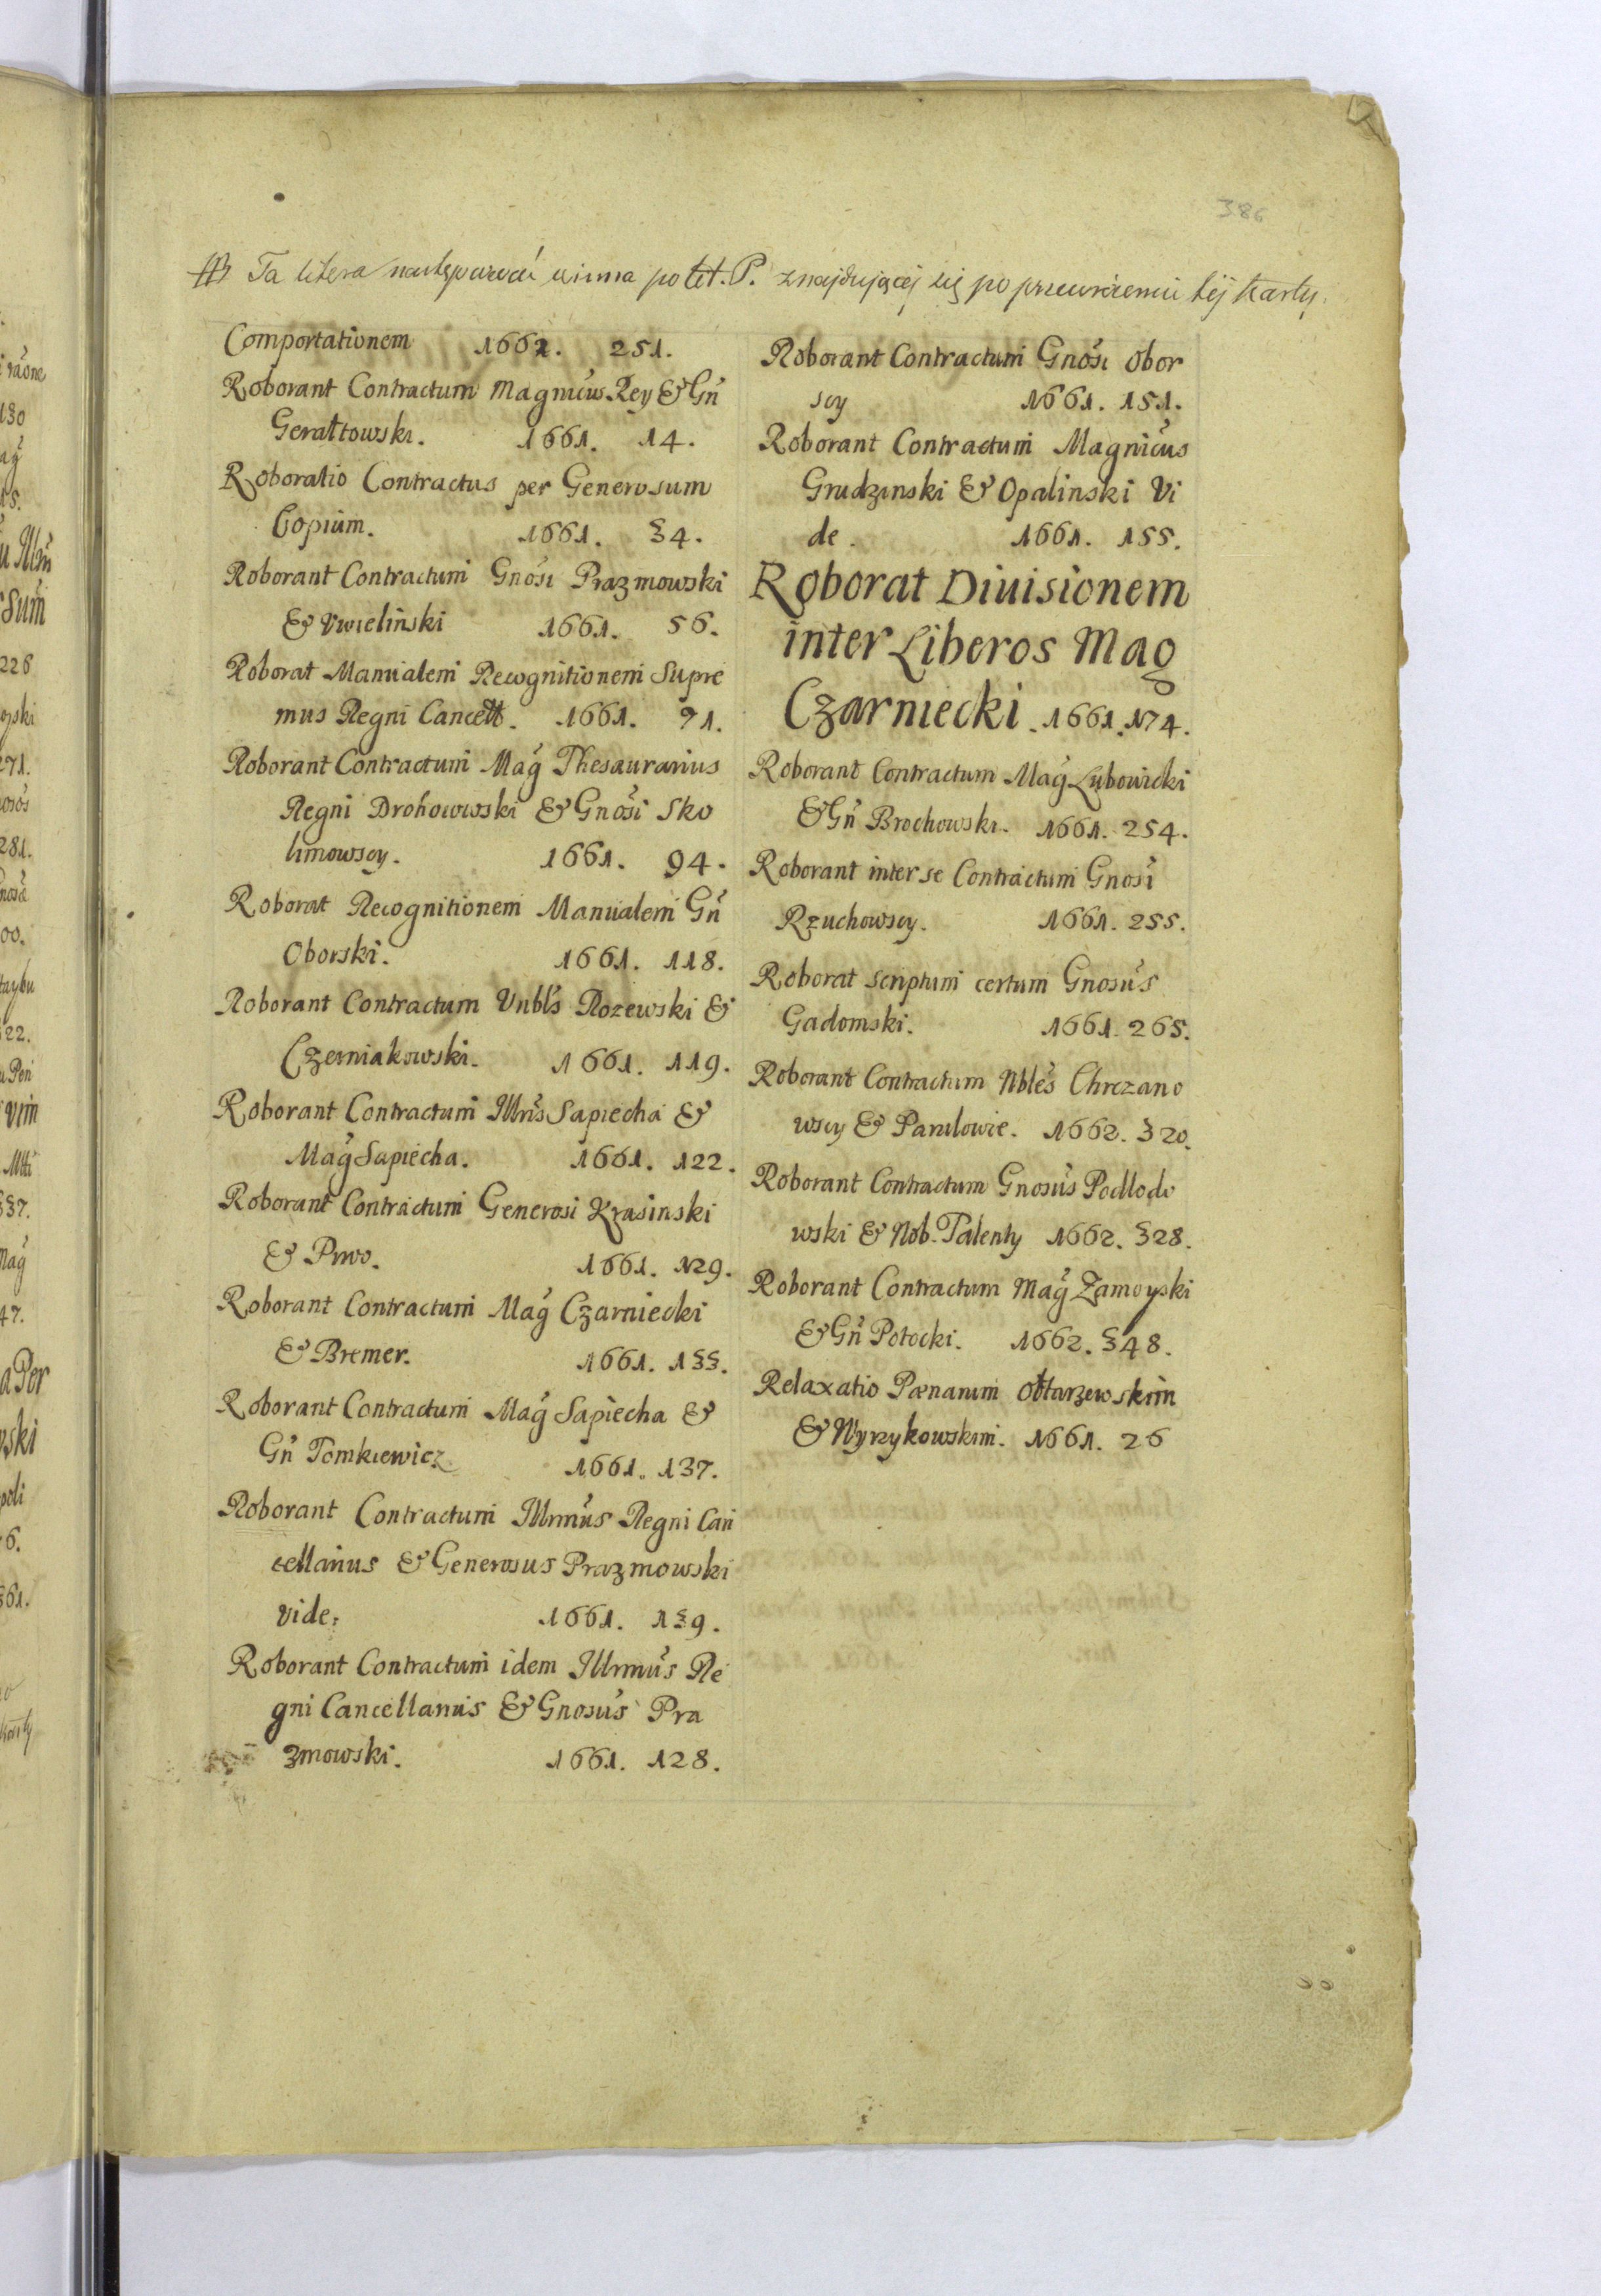 386
Ta litera następować winna po lit. P. znajdującej się po przewróceniu tej karty.
Comportationem 1662. 251.
Roborant Contractum Magnicus Rey & Gn
Gerałtowski. 1661. 14.
Roboratio Contractus per Generosum
Gopium. 1661. 34.
Roborant Contractum Gnosi Prazmowski
& Vwielinski 1661. 56.
Roborat Manualem Recognitionem Supre
mus Regni Cancell. 1661. 71.
Roborant Contractum Mag Thesaurarius
Regni Drohowski & Gnosi Sko
limowscy. 1661. 94.
Roborat Recognitionem Manualem Gn
Oborski. 1661. 118.
Roborant Contractum Vnbls Rozewski &
Czerniakowski. 1661. 119.
Roborant Contractum Illris Sapiecha &
Mag Sapiecha. 1661. 122.
Roborant Contractum Generosi Krasinski
& Prwo. 1661. 129.
Roborant Contractum Mag Czarniecki
& Bremer. 1661. 133.
Roborant Contractum Mag Sapiecha &
Gn Tomkiewicz 1661. 137.
Roborant Contractum Illrmus Regni Can
cellarius & Generosus Prazmowski
vide. 1661. 139.
Roborant Contractum idem Illrmus Re
gni Cancellarius & Gnosus Pra
zmowski. 1661. 128.
Roborant Contractum Gnosi Obor
scy 1661. 151.
Roborant Contractum Magnicus
Grudzinski & Opalinski Vi
de. 1661. 155.
Roborat Diuisionem
inter Liberos Mag
Czarniecki. 1661. 174.
Roborant Contractum Mag Lubowicki
& Gn Brochowski. 1661. 254.
Roborant inter se Contractum Gnosi
Rzuchowscy. 1661. 255.
Roborat scriptum certum Gnosus
Gadomski. 1661. 265.
Roborant Contractum Nbles Chrzano
wscy & Pawlowie. 1662. 320.
Roborant Contractum Gnosus Podlodo
wski & Nob. Talenty 1662. 328.
Roborant Contractum Mag Zamoyski
& Gn Potocki. 1662. 348.
Relaxatio Pænarum Ołtarzewskim
& Wyrzykowskim. 1661. 26